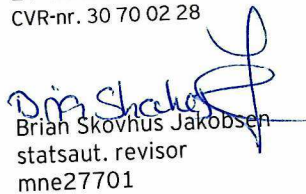 CVR-nr. 30 70 02 28
Brian Skovhus Jakobsen
statsaut. revisor
mne27701